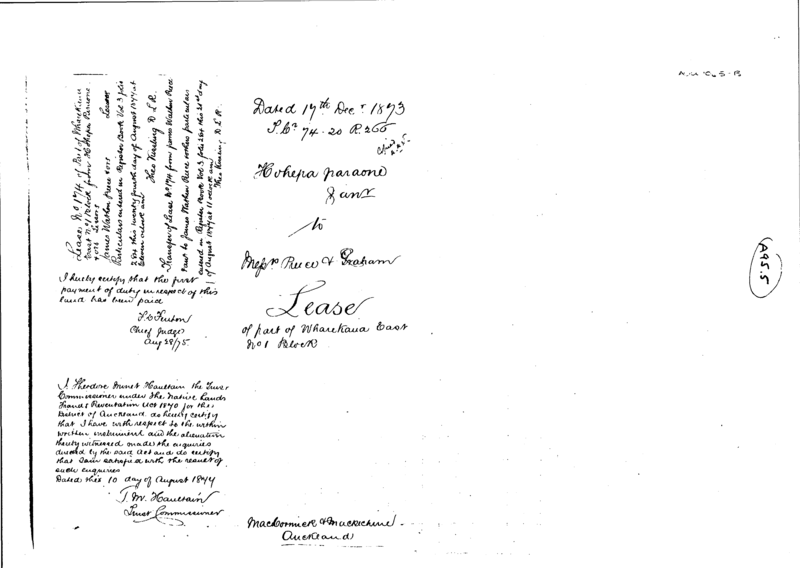 Lease No 1714 of Part of Wharekaua
East No 1 Block from Hohepa Paraone
& ors Lessors
James Wathen Preece & ors Lessees
Particulars entered in Register Book Vol. 3 folio
288 this twenty fourth day of August 1877 at
Eleven o'clock am
Theo Kissling D L R.
Transfer of Lease No 1714 from James Wathen Preece
& anr to James Wathen Preece & others particulars
entered in Register Book Vol 3 folio 288 this day
of August 1877 at 11 o'clock am
Theo Kissling D L R.
I hereby certify that the first
payment of duty in respect of this
land has been paid
F. D Fenton
Chief Judge
Aug 28/75.
I. Theodore Minet Haultain the Trust
Commissioner under the Native Lands
Frauds Prevention Act 1870 for the
District of Auckland do hereby certify
that I have with respect to the within
written instrument and the alienation
thereby witnessed made the enquiries
directed by the said Act and do certify
that I am satisfied with the result of
such enquiries
Dated this 10 day of August 1877
T. M. Haultain
Trust Commissioner
Dated 17th Decr 1873
74-20 P. 266
Hohepa paraone
& anr
to
Messrs Preece & Graham
Lease
of part of Wharekaua East
No 1 Block
MacCormick & Mackechnie
Auckland
A95.5